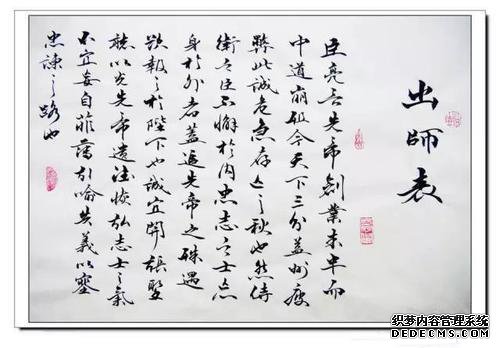 出師表
臣亮言先帝創業未半而
中道崩殂今天下三分益州疲
弊此誠危急存亡之秋也然侍
衛之臣不懈於内忠志之士忘
身於外者蓋追先帝之殊遇
欲報之於陛下也誠宜開張聖
聽以光先帝遺德恢弘志士之氣
不宜妄自菲薄引喻失義以塞
忠諫之路也
织梦内容管理系统
DEDECMS.COM